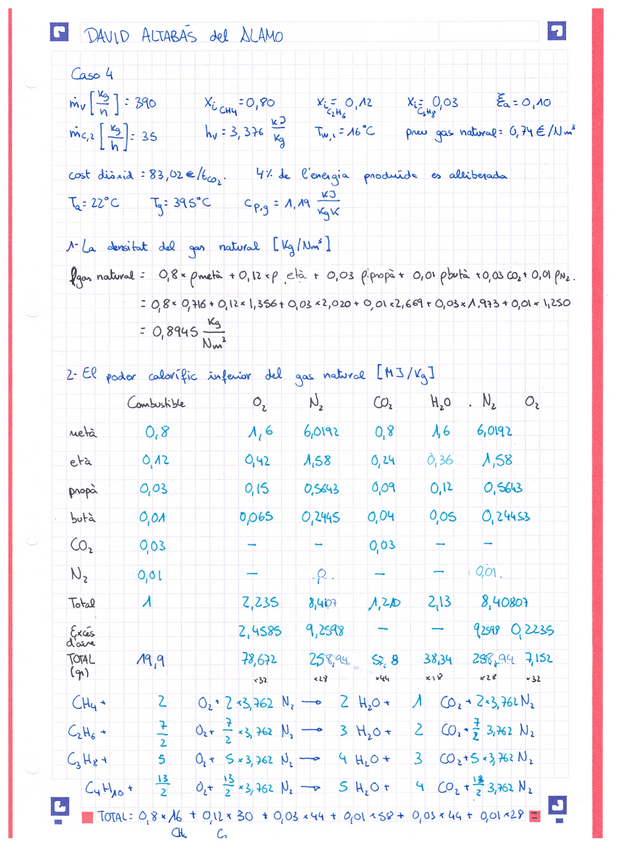 DAVID ALTABÁS del ALAMO
Caso 4
ṁv [kg/h] = 390 Xi CH4 = 0,80 Xi C2H6 = 0,12 Xi C3H8 = 0,03 Ea = 0,10
ṁc,2 [kg/h] = 35 hv = 3,376 kJ/kg Tw,1 = 16°C preu gas natural = 0,74 €/Nm³
cost diòxid = 83,02 €/tCO2. 4% de l'energia produïda es alliberada
Ta = 22°C Tg = 395°C Cp,g = 1,19 kJ/kgK
1- La densitat del gas natural [Kg/Nm³]
ρgas natural = 0,8 × ρmetà + 0,12 × ρ età + 0,03 ρpropà + 0,01 ρbutà + 0,03 CO2 + 0,01 ρN2.
= 0,8 × 0,716 + 0,12 × 1,356 + 0,03 × 2,020 + 0,01 × 2,669 + 0,03 × 1,973 + 0,01 × 1,250
= 0,8945 Kg/Nm³
2- El poder calorífic inferior del gas natural [MJ/Kg]
Combustible O2 N2 CO2 H2O N2 O2
metà 0,8 1,6 6,0192 0,8 1,6 6,0192
età 0,12 0,42 1,58 0,24 0,36 1,58
propà 0,03 0,15 0,5643 0,09 0,12 0,5643
butà 0,01 0,065 0,2445 0,04 0,05 0,24453
CO2 0,03 – – 0,03 – –
N2 0,01 – – – 0,01
Total 1 2,235 1,210 2,13 8,40807
Excés d'aire 2,4585 9,2598 – – 9,2598 0,2235
TOTAL (gr) 19,9 78,672 258,94 38,34 258,94 7,152
×32 ×28 ×44 ×18 ×28 ×32
CH4 + 2 O2 + 2×3,762 N2 → 2 H2O + 1 CO2 + 2×3,762 N2
C2H6 + 7/2 O2 + 7/2 ×3,762 N2 → 3 H2O + 2 CO2 + 7/2 3,762 N2
C3H8 + 5 O2 + 5×3,762 N2 → 4 H2O + 3 CO2 + 5×3,762 N2
C4H10 + 13/2 O2 + 13/2 ×3,762 N2 → 5 H2O + 4 CO2 + 13/2 3,762 N2
TOTAL = 0,8 × 16 + 0,12 × 30 + 0,03 × 44 + 0,01 × 58 + 0,03 × 44 + 0,01 × 28 =
CH4 C2